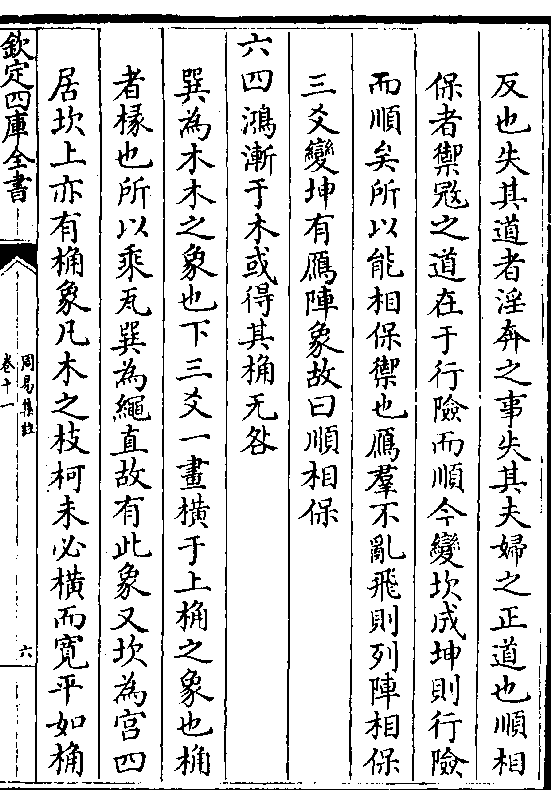 反也失其道者淫奔之事失其夫婦之正道也順相
保者禦㓂之道在于行險而順今變坎成坤則行險
而順矣所以能相保禦也鴈羣不亂飛則列陣相保
三爻變坤有鴈陣象故曰順相保
六四鴻漸于木或得其桷无咎
巽為木木之象也下三爻一畫橫于上桷之象也桷
者椽也所以乘瓦巽為繩直故有此象又坎為宫四
居坎上亦有桷象凡木之枝柯未必橫而寛平如桷
欽定四庫全書
周易集註
卷十一
六